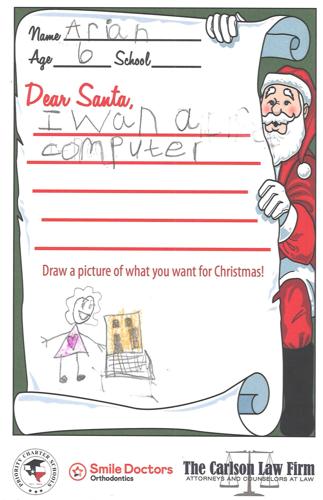 Name Ariah
Age 6 School
Dear Santa,
I wan a
computer
Draw a picture of what you want for Christmas!
PRIORITY CHARTER SCHOOLS
Smile Doctors
Orthodontics
The Carlson Law Firm
ATTORNEYS AND COUNSELORS AT LAW